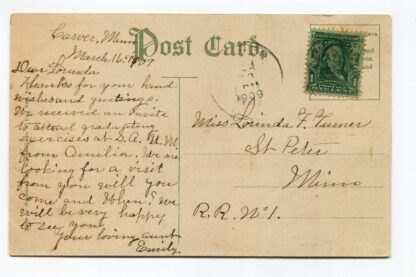 Carver, Minn
March 16, 1909
Dear Lorinda
Thanks for your kind
wishes and greetings.
We received an invite
to attend graduating
exercises at S.A. U.M.
from Amelia. We are
looking for a visit
from you will you
come and When? We
will be very happy
to see you.
Your loving aunt
Emily
Post Card
1909
Miss Lorinda F. Turner
St Peter
Minn
R.R. No 1.